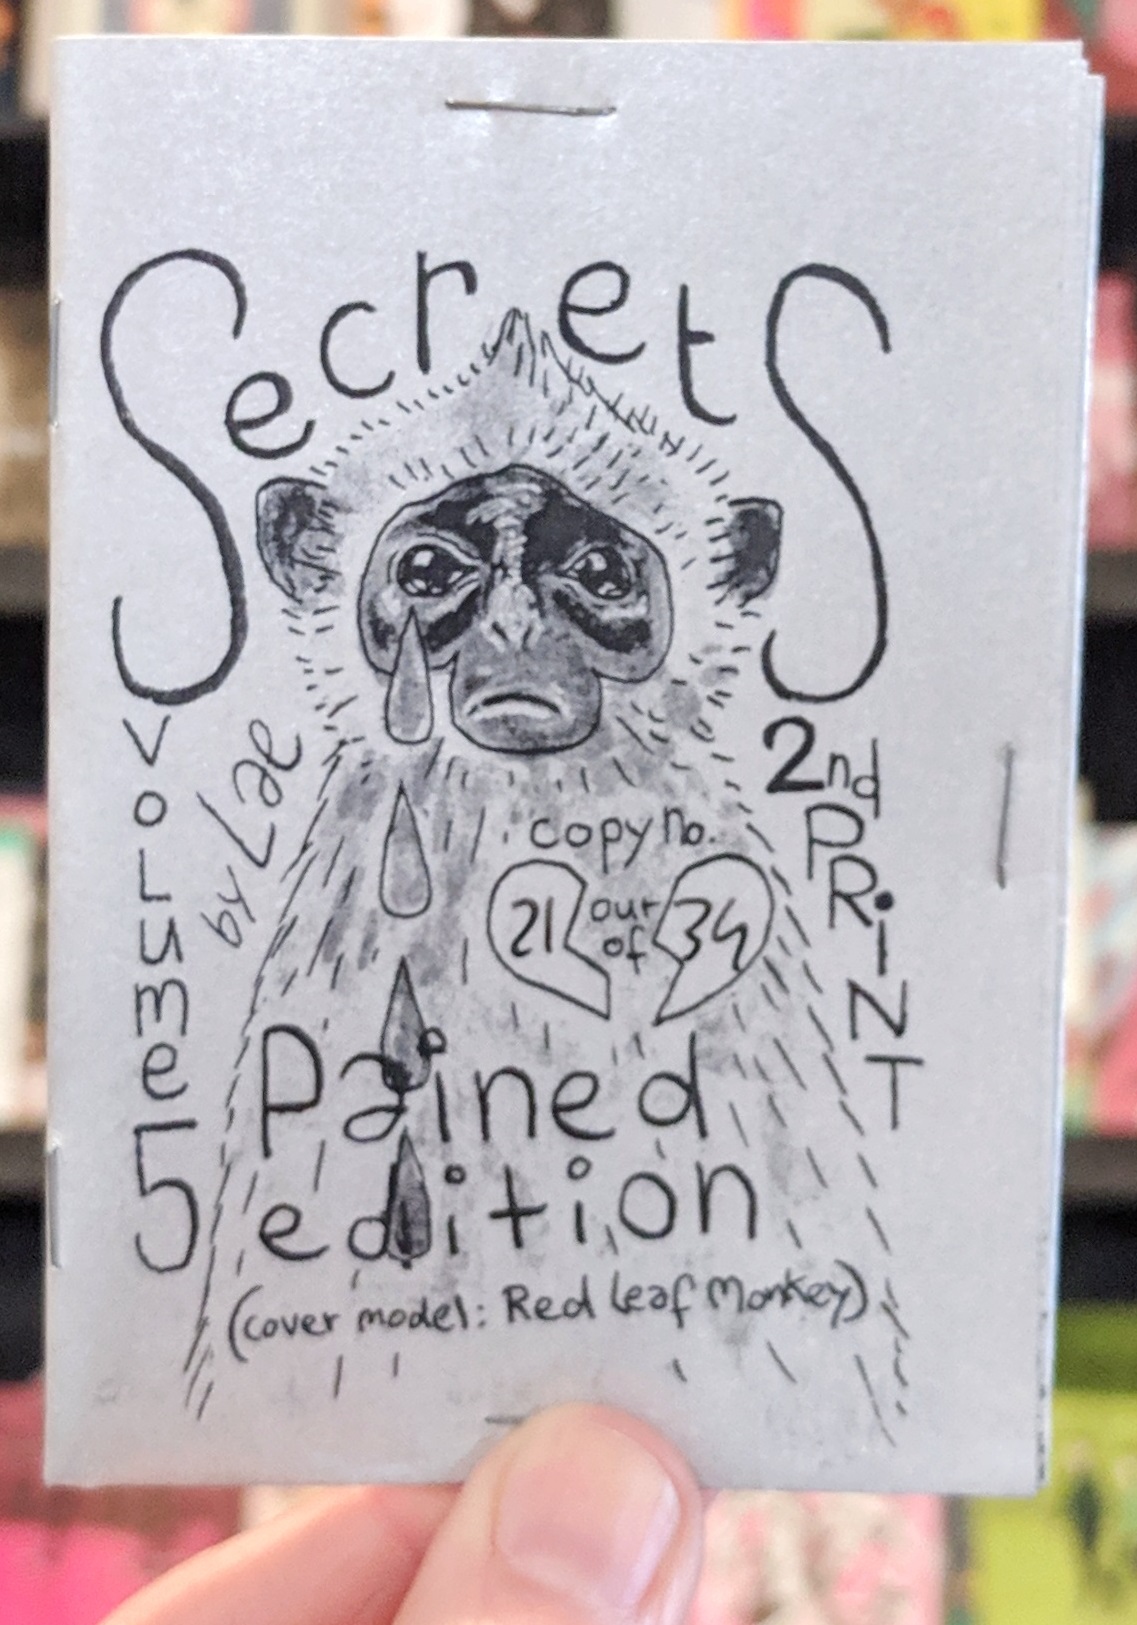 SecretS
Volume 5
by Lae
2nd PRiNT
copy no.
21 out of 34
Pained
edition
(cover model: Red Leaf Monkey)